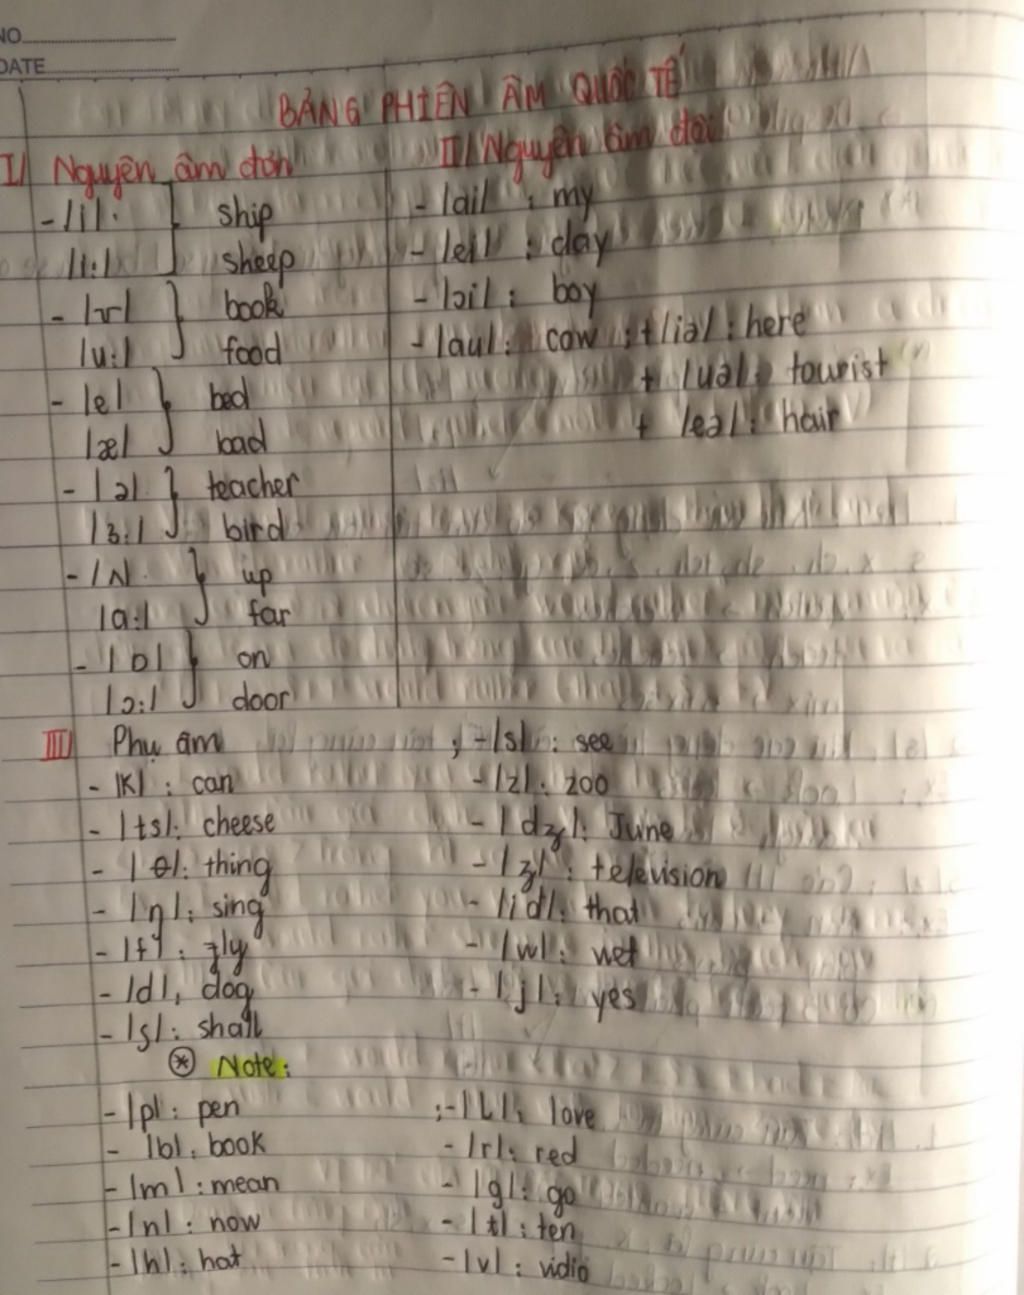 NO
DATE
BẢNG PHIÊN ÂM QUỐC TẾ
I/ Nguyên âm đơn
- /i/ } ship
/i:/ } sheep
- /ʊ/ } book
/u:/ } food
- /e/ } bed
/æ/ } bad
- /ə/ } teacher
/ɜ:/ } bird
- /ʌ } up
/ɑ:/ } far
- /ɒ/ } on
/ɔ:/ } door
II/ Nguyên âm đôi
- /ai/ : my
- /ei/ : day
- /ɔi/ : boy
- /au/ : cow ; + /iə/ : here
+ /uə/ : tourist
+ /eə/ : hair
III/ Phụ âm
- /k/ : can
- /ts/ : cheese
- /θ/ : thing
- /ŋ/ : sing
- /f/ : fly
- /d/ , dog
- /ʃ/ : shall
; - /s/ : see
- /z/ : zoo
- /dʒ/ : June
- /ʒ/ : television
- /id/ : that
- /w/ : wet
- /j/ : yes
* Note:
- /p/ : pen
- /b/ : book
- /m/ : mean
- /n/ : now
- /h/ : hat
; - /L/ : love
- /r/ : red
- /g/ : go
- /t/ : ten
- /v/ : vidio